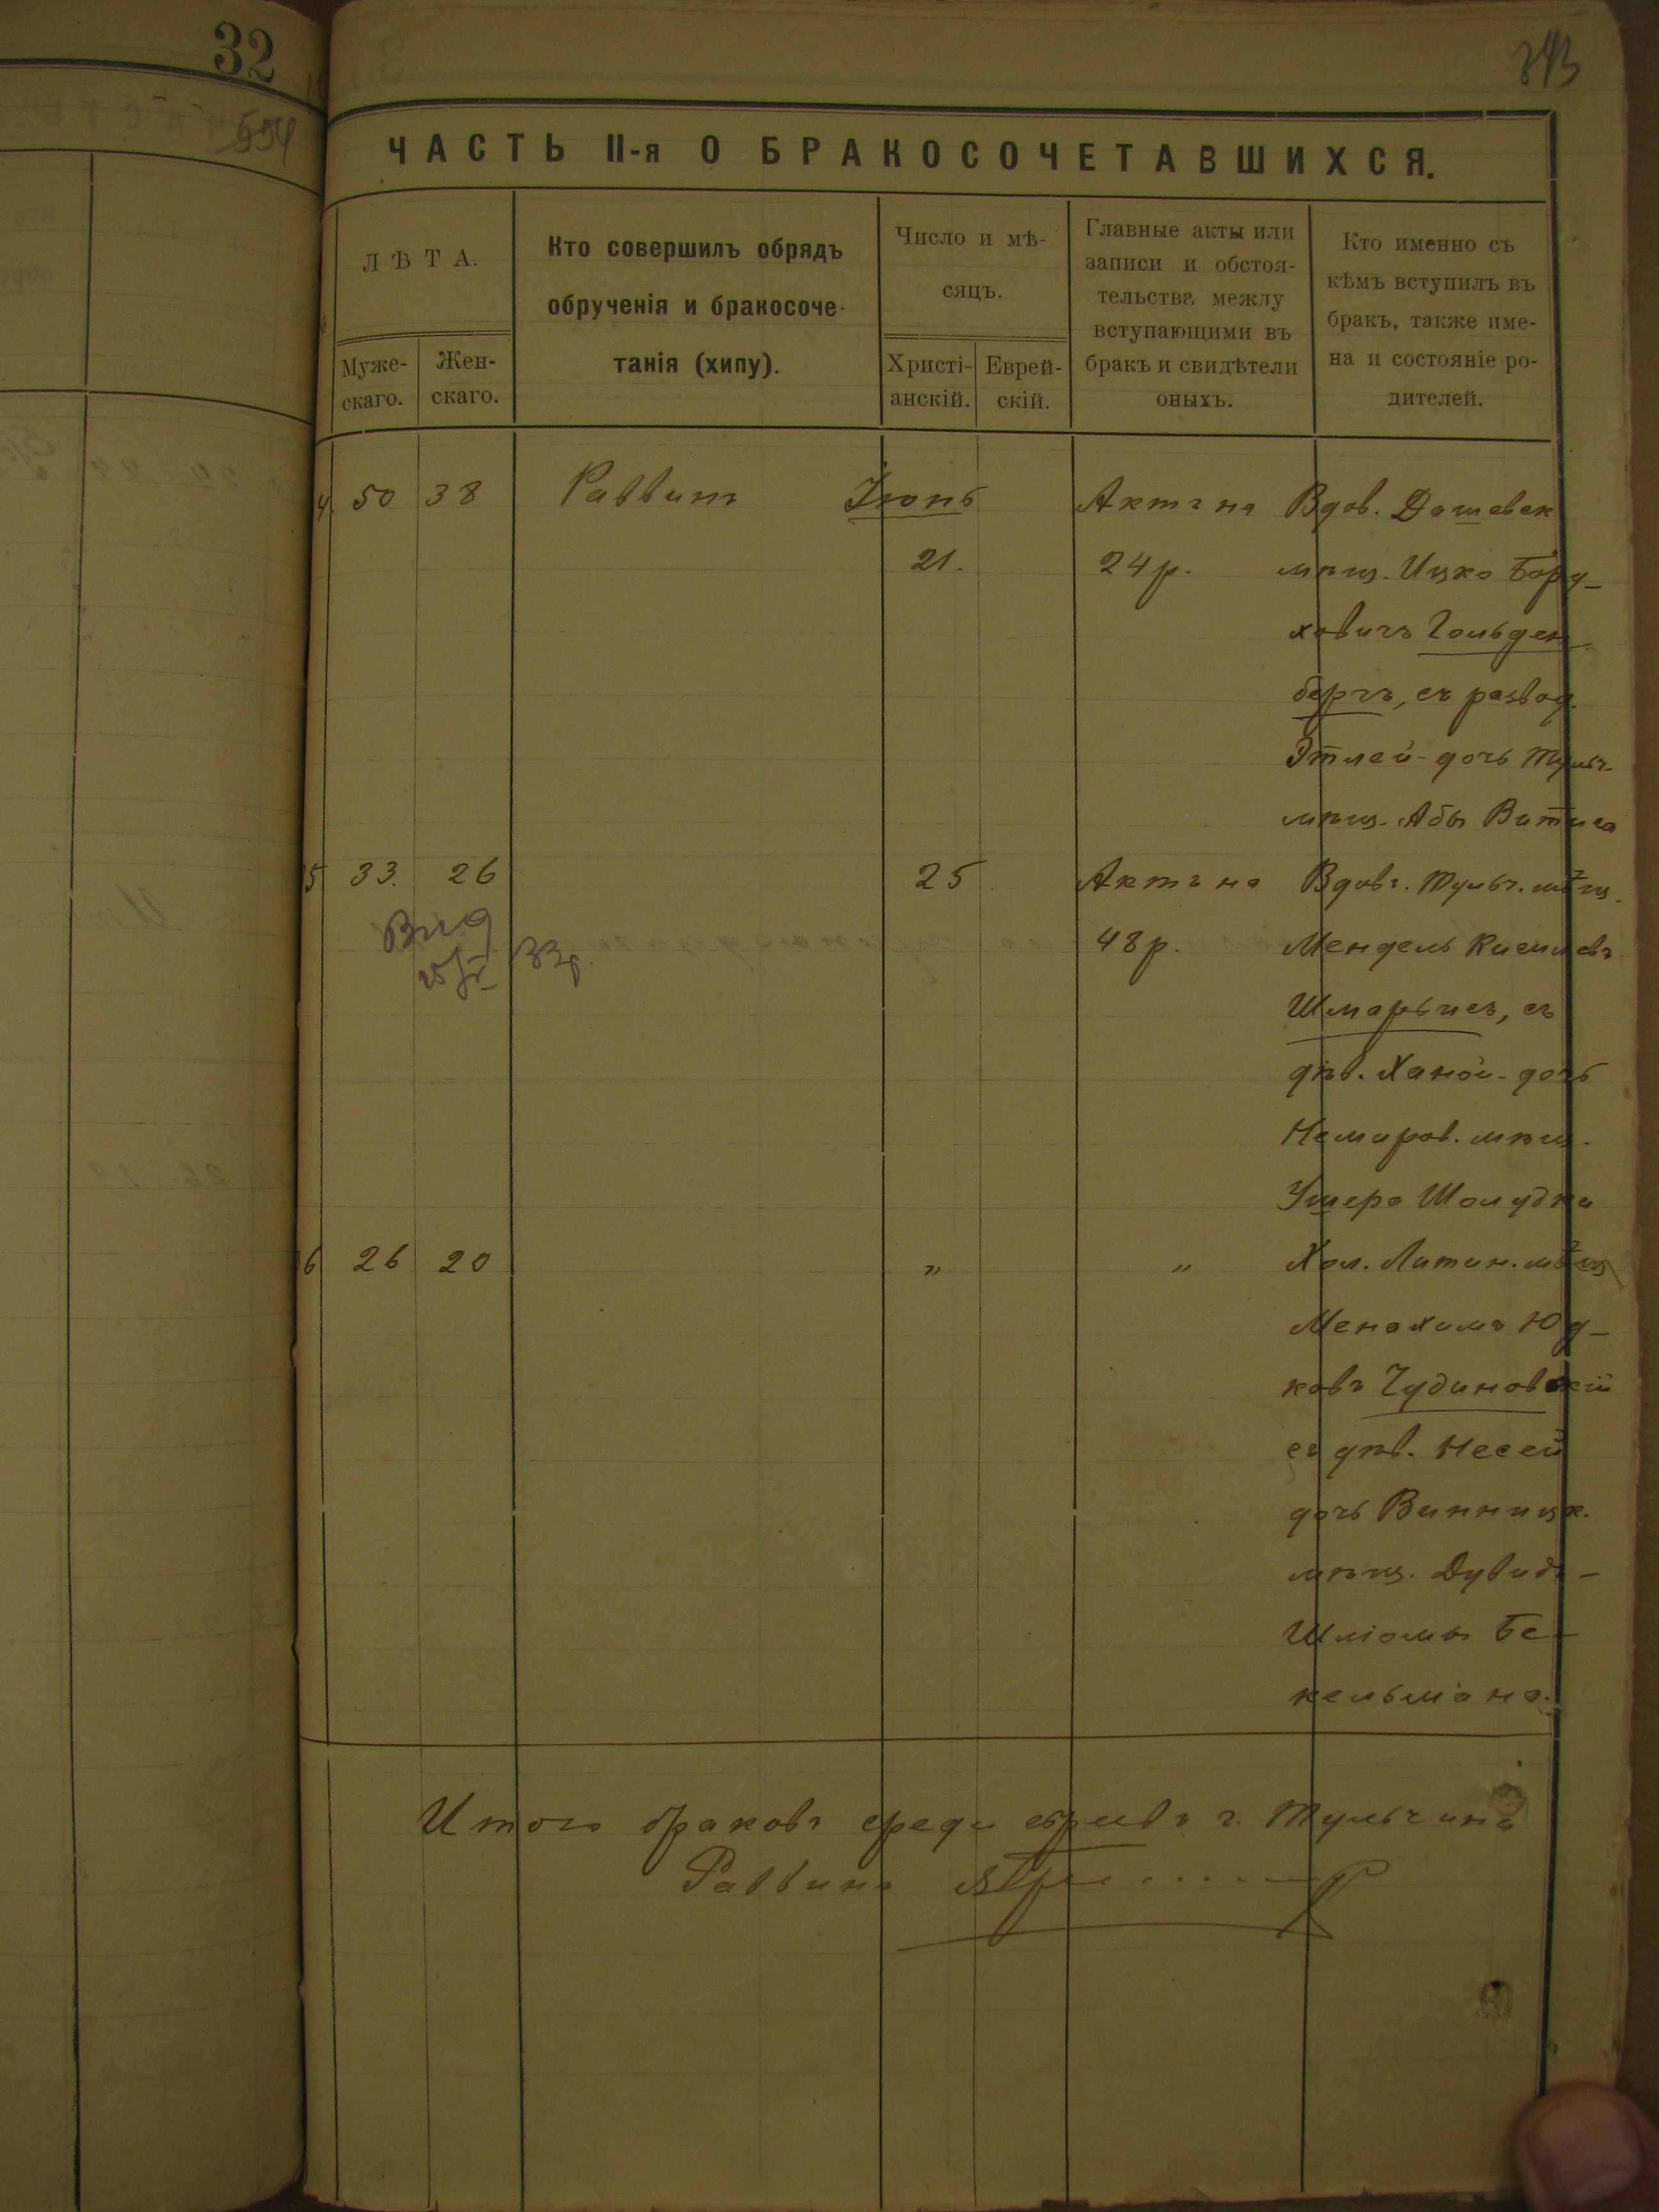 32
554
343
ЧАСТЬ II-я О БРАКОСОЧЕТАВШИХСЯ.
ЛѢТА.
Муже-
скаго.
Жен-
скаго.
Кто совершилъ обрядъ
обрученія и бракосоче-
танія (хипу).
Число и мѣ-
сяцъ.
Христі-
анскій.
Еврей-
скій.
Главные акты или
записи и обстоя-
тельства между
вступающими въ
бракъ и свидѣтели
оныхъ.
Кто именно съ
кѣмъ вступилъ въ
бракъ, также име-
на и состояніе ро-
дителей.
4 50 38 Раввинъ Іюнь Актъ на Вдов. Дашевск
21. 24 р. мѣщ. Ицко Бору-
ховичъ Гольден-
бергъ, съ развод.
Этлей-дочь Тульч.
мѣщ. Абы
5 33. 26 25 Актъ на Вдовъ. Тульч. мѣщ.
48 р. Мендель Кисилевъ
Шмарьисъ, съ
дѣв. Ханой-дочь
Немиров. мѣщ.
Ушера Шолудка
6 26 20 " " Хол. Литин. мѣщ
Менахимъ Юд-
ковъ Чудиновскій
съ дѣв. Несей
дочь Винницк.
мѣщ. Дувидъ-
Шліомы Бе-
кельмана.
Итого браковъ среди евреевъ г. Тульчина
Раввинъ